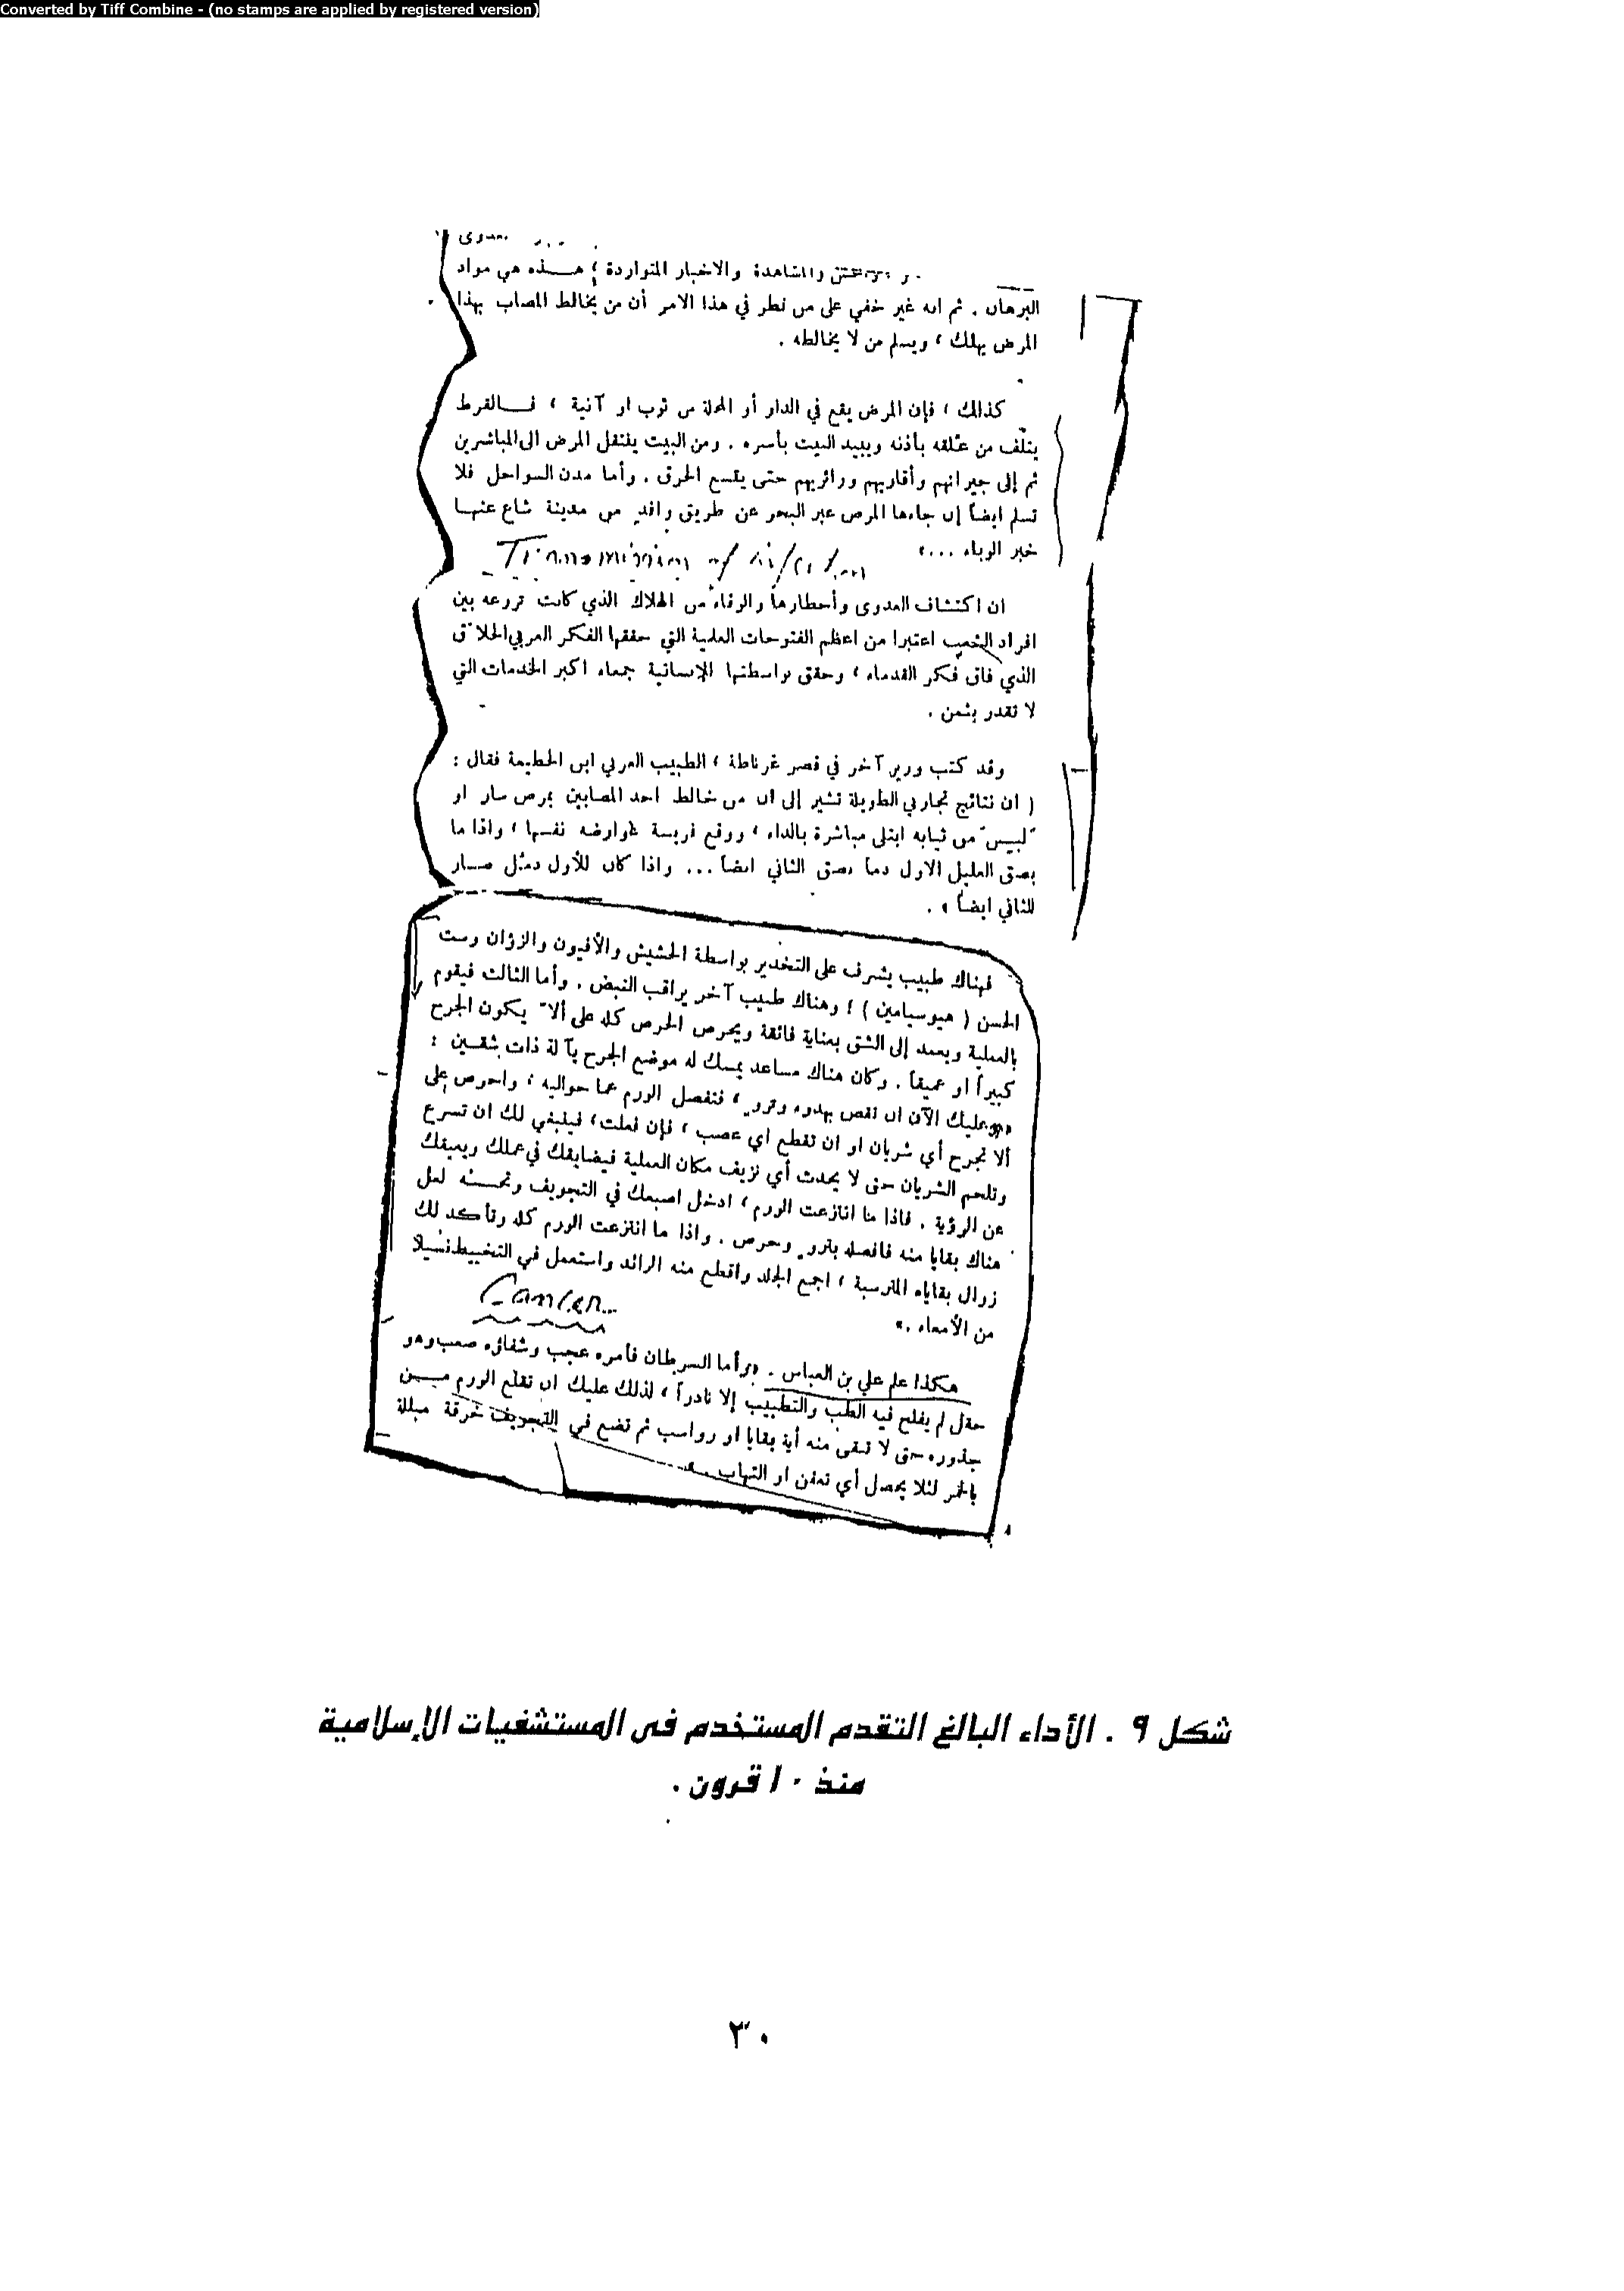 Converted by Tiff Combine - (no stamps are applied by registered version)
والمشاهدة والاخبار المتواردة ؛ هـذه هي مواد
البرهان . ثم انه غير خفي على من نظر في هذا الامر أن من يخالط المصاب بهذا
المرض يهلك ، ويسلم من لا يخالطه .
كذلك ، فإن المرض يقع في الدار أو المحلة من ثوب او آنية ، فـالقرط
يتلف من علقه بأذنه ويبيد البيت بأسره . ومن البيت ينتقل المرض الى المباشرين
ثم إلى جيرانهم وأقاربهم وزائريهم حتى يتسع الخرق . وأما مدن السواحل فلا
تسلم ايضاً إن جاءها المرض عبر البحر عن طريق وافد من مدينة شاع عنهـا
خبر الوباء ...»
Transmission of
ان اكتشاف العدوى وأخطارها والوقاء من الهلاك الذي كانت تزرعه بين
افراد الشعب اعتبرا من اعظم الفتوحات العلمية التي حققها الفكر العربي الخلاّق
الذي فاق فكر القدماء ، وحقق بواسطتها للإنسانية جمعاء اكبر الخدمات التي
لا تقدر بثمن .
وقد كتب وزير آخر في قصر غرناطة ، الطبيب العربي ابن الخطيمة فقال :
( ان نتائج تجاربي الطويلة تشير إلى ان من خالط احد المصابين بمرض سار او
لبس من ثيابه ابتلى مباشرة بالداء ، ووقع فريسة عوارضه نفسها ، واذا ما
بصق العليل الاول دماً بصق الثاني ايضاً ... واذا كان للأول دمّل صـار
للثاني ايضاً » .
فهناك طبيب يشرف على التخدير بواسطة الحشيش والأفيون والزؤان وست
الحسن ( هيوسيامين ) ؛ وهناك طبيب آخر يراقب النبض . وأما الثالث فيقوم
بالعملية ويعمد إلى الشق بعناية فائقة ويحرص الحرص كله على ألاّ يكون الجرح
كبيراً او عميقاً . وكان هناك مساعد يمسك له موضع الجرح بآلة ذات شقين :
«وعليك الآن ان تقص بهدوء وتروٍ ، فتفصل الورم عما حواليه ، واحرص على
ألا تجرح أي شريان او ان تقطع اي عصب ، فإن فعلت ، فينبغي لك ان تسرع
وتلحم الشريان حتى لا يحدث أي نزيف مكان العملية فيضايقك في عملك ويعيقك
عن الرؤية . فاذا ما انتزعت الورم ، ادخل اصبعك في التجويف وتحسّسه لعل
هناك بقايا منه فافصله بتروٍ وحرص . واذا ما انتزعت الورم كله وتأكد لك
زوال بقاياه المترسبة ، اجمع الجلد واقطع منه الزائد واستعمل في التخييط نسيلا
من الأمعاء .»
Cancer...
هكذا علم علي بن العباس . «وأما السرطان فأمره عجب وشفاؤه صعب وهو
حقل لم يفلح فيه الطب والتطبيب إلا نادراً ، لذلك عليك ان تقلع الورم مـن
جذوره حتى لا تبقى منه أية بقايا او رواسب ثم تضع في التجويف خرقة مبللة
بالخمر لئلا يحصل أي تعفن او التهاب . »
شكل ٩ . الأداء البالغ التقدم المستخدم فى المستشفيات الإسلامية
منذ ١٠ قرون .
٣٠